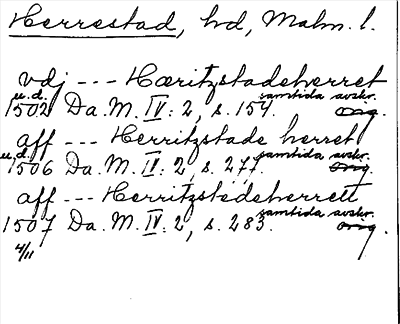 Herrestad, hd, Malm. l.
vdj --- Hæritzstadeherret
u.d. samtida avskr.
1502 Da. M. IV: 2, s. 154. Org.
aff --- Herritzstade herret
u.d. samtida avskr.
1506 Da. M. IV: 2, s. 277. Org.
aff --- Herritzstedeherrett
samtida avskr.
1507 Da. M. IV: 2, s. 283. Org.
4/11